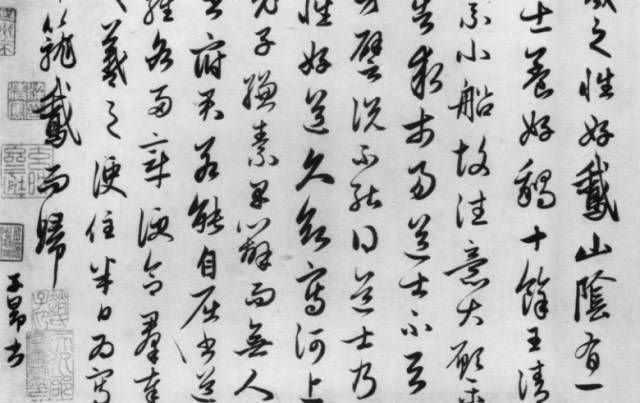 羲之性好鵞山陰有一
士養好鵝十餘王清
乘小船故往意大願樂
告求市易道士不與
方譬說不能得道士乃
性好道久欲寫河上
老子縑素早辦而無人
書府君若能自屈書道
經各兩章便合羣奉
羲之便住半日為寫
籠鵞而歸
子昂書